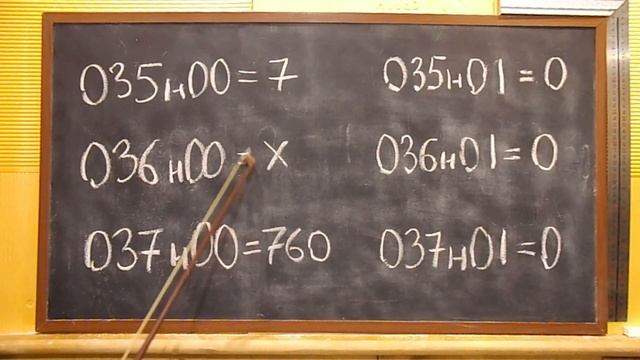 035н00 = 7 035н01 = 0
036н00 = x 036н01 = 0
037н00 = 760 037н01 = 0